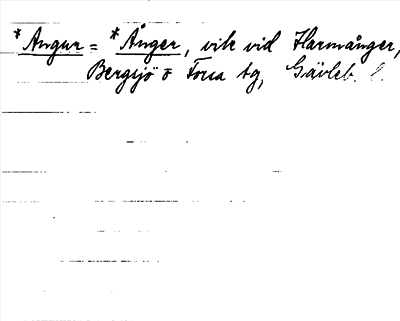 *Angur = *Ånger, vik vid Harmånger,
Bergsjö o Forsa tg, Gävleb. l.